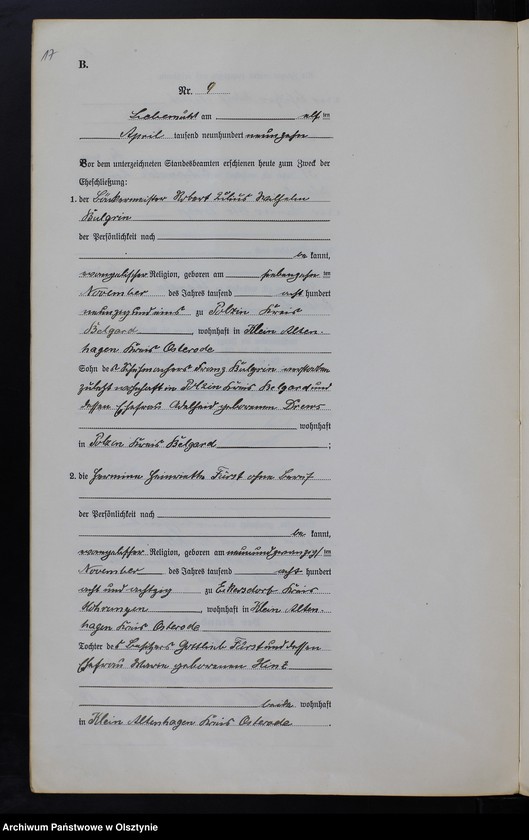 17
B.
Nr. 9
Liebemühl am elf ten
April tausend neunhundert neunzehn
Vor dem unterzeichneten Standesbeamten erschienen heute zum Zweck der
Eheschließung:
1. der Bäckermeister Robert Julius Wilhelm
Kulgrin
der Persönlichkeit nach
be kannt,
evangelischer Religion, geboren am siebenzehn ten
November des Jahres tausend acht hundert
neunzig und eins zu Polzin Kreis
Belgard, wohnhaft in Klein Alten-
hagen Kreis Osterode
Sohn des Schuhmachers Franz Kulgrin verstorben
zuletzt wohnhaft in Polzin Kreis Belgard und
dessen Ehefrau Adelheid geborenen Drews
wohnhaft
in Polzin Kreis Belgard ;
2. die Hermine Henriette Fürst ohne Beruf
der Persönlichkeit nach
be kannt,
evangelischer Religion, geboren am neunundzwanzigsten
November des Jahres tausend acht hundert
acht und achtzig zu Eckersdorf Kreis
Mohrungen, wohnhaft in Klein Alten-
hagen Kreis Osterode
Tochter des Besitzers Gottlieb Fürst und dessen
Ehefrau Marie geborenen Hinz
beide wohnhaft
in Klein Altenhagen Kreis Osterode .
Archiwum Państwowe w Olsztynie